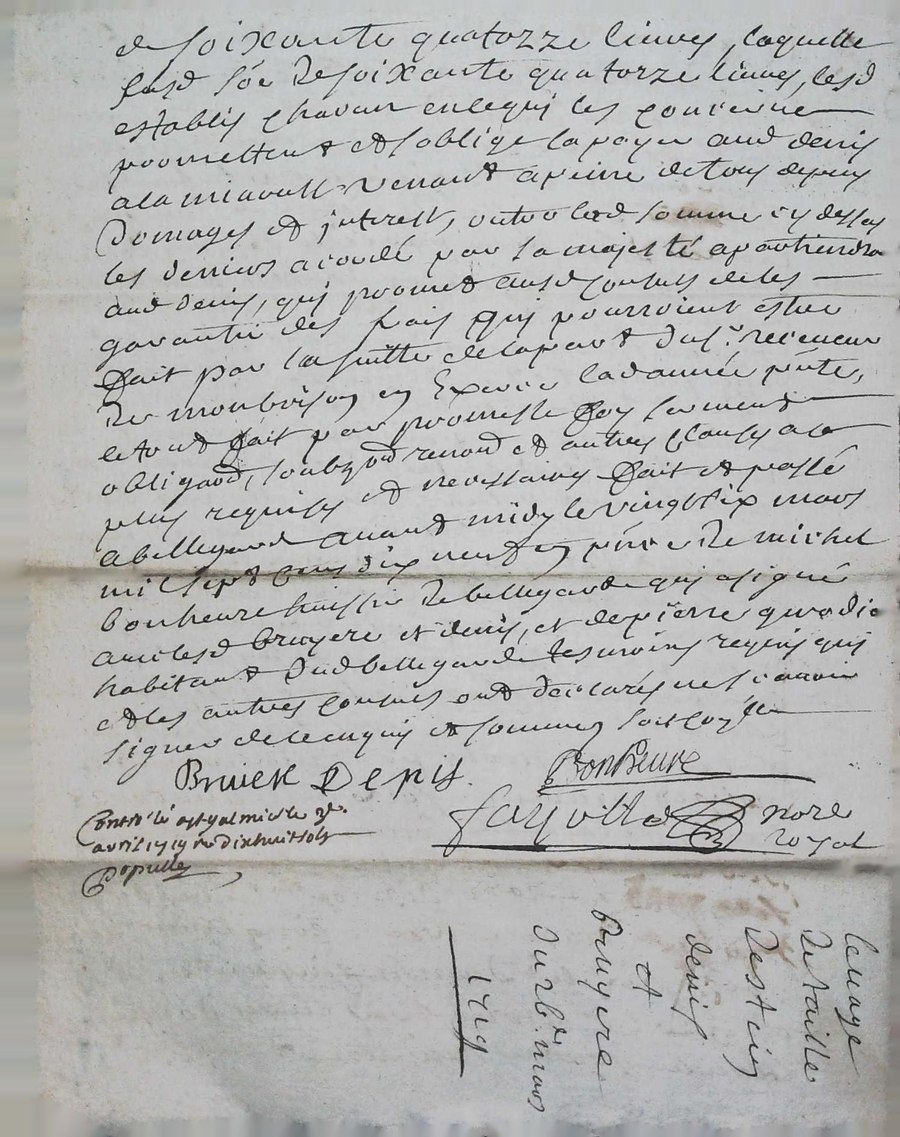 de soixante quatorze livres, laquelle
susd soe de soixante quatorze livres, lesd
establis chacun en ce qui les concerne
promettent et s'oblige la payer aud denis
a la miaoust venant a peine de tous depens
Domages et interest, outre lad somme cy dessus
les deniers acordé par sa majesté apartiendra
aud denis, qui promet ausd consuls de les
garantir des frais qui pourroient estre
fait par la suitte de la part du sr. receveur
De monbrison en Exercice lad année pnte,
le tout fait par promesse foy serment
obligaon, soubzon renon et autres clauses a ce
plus requises et necessaires fait et passé
a bellegarde avant midy le vingt six mars
mil sept cens dix neuf en pnce De michel
bonheure huissier De bellegarde qui a signé
avec lesd bruyere et denis, et de pierre
habitant dud bellegarde tesmoins requis qui
et les autres consuls ont declarés ne scavoir
signer de ce enquis et sommes
Bruiere Denis Bonheure
nore
royal
Controlé a st galmier le 3e.
avril 1719 rc dix huit sols
Populle
levage
de taille
Destein
denis
et
bruyere
Du 26e. mars
1719